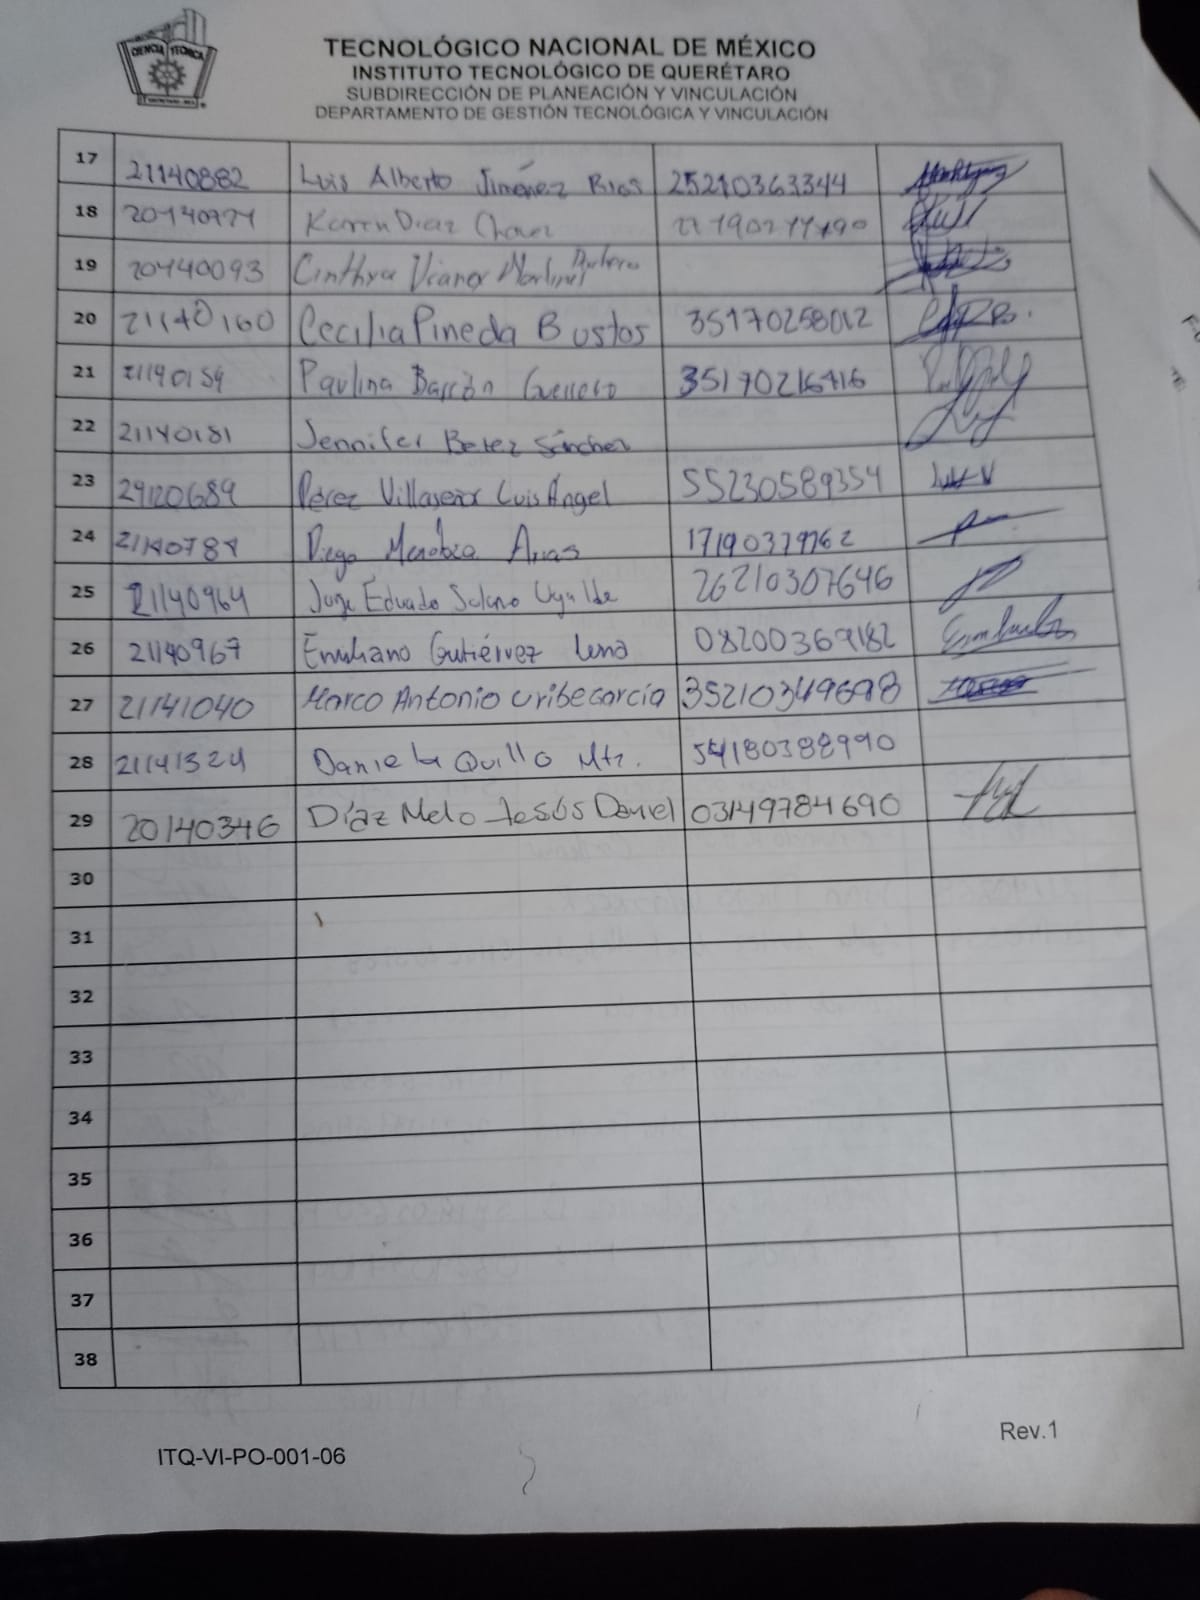 CIENCIA TÉCNICA
TECNOLÓGICO NACIONAL DE MÉXICO
INSTITUTO TECNOLÓGICO DE QUERÉTARO
SUBDIRECCIÓN DE PLANEACIÓN Y VINCULACIÓN
DEPARTAMENTO DE GESTIÓN TECNOLÓGICA Y VINCULACIÓN
17 21140882 Luis Alberto Jiménez Rios 25210363344
18 Karen Diaz
19 20140093 Cinthya
20 21140160 Cecilia Pineda Bustos 35170258012
21 21140159 Paulina Barrón Guerrero 35170216416
22 21140181 Jennifer Sánchez
23 Pérez Villaseñor Luis Angel 55230589354
24 Diego Mendoza Arias
25 21140964 Jorge Eduado Solano Ugalde 26210307646
26 21140967 Emiliano Gutiérrez Luna 08200369182
27 21141040 Marco Antonio Uribe García
28 Daniela Quillo Mtz. 54180388990
29 20140346 Díaz Melo Jesús Daniel 03149784690
30
31
32
33
34
35
36
37
38
Rev.1
ITQ-VI-PO-001-06